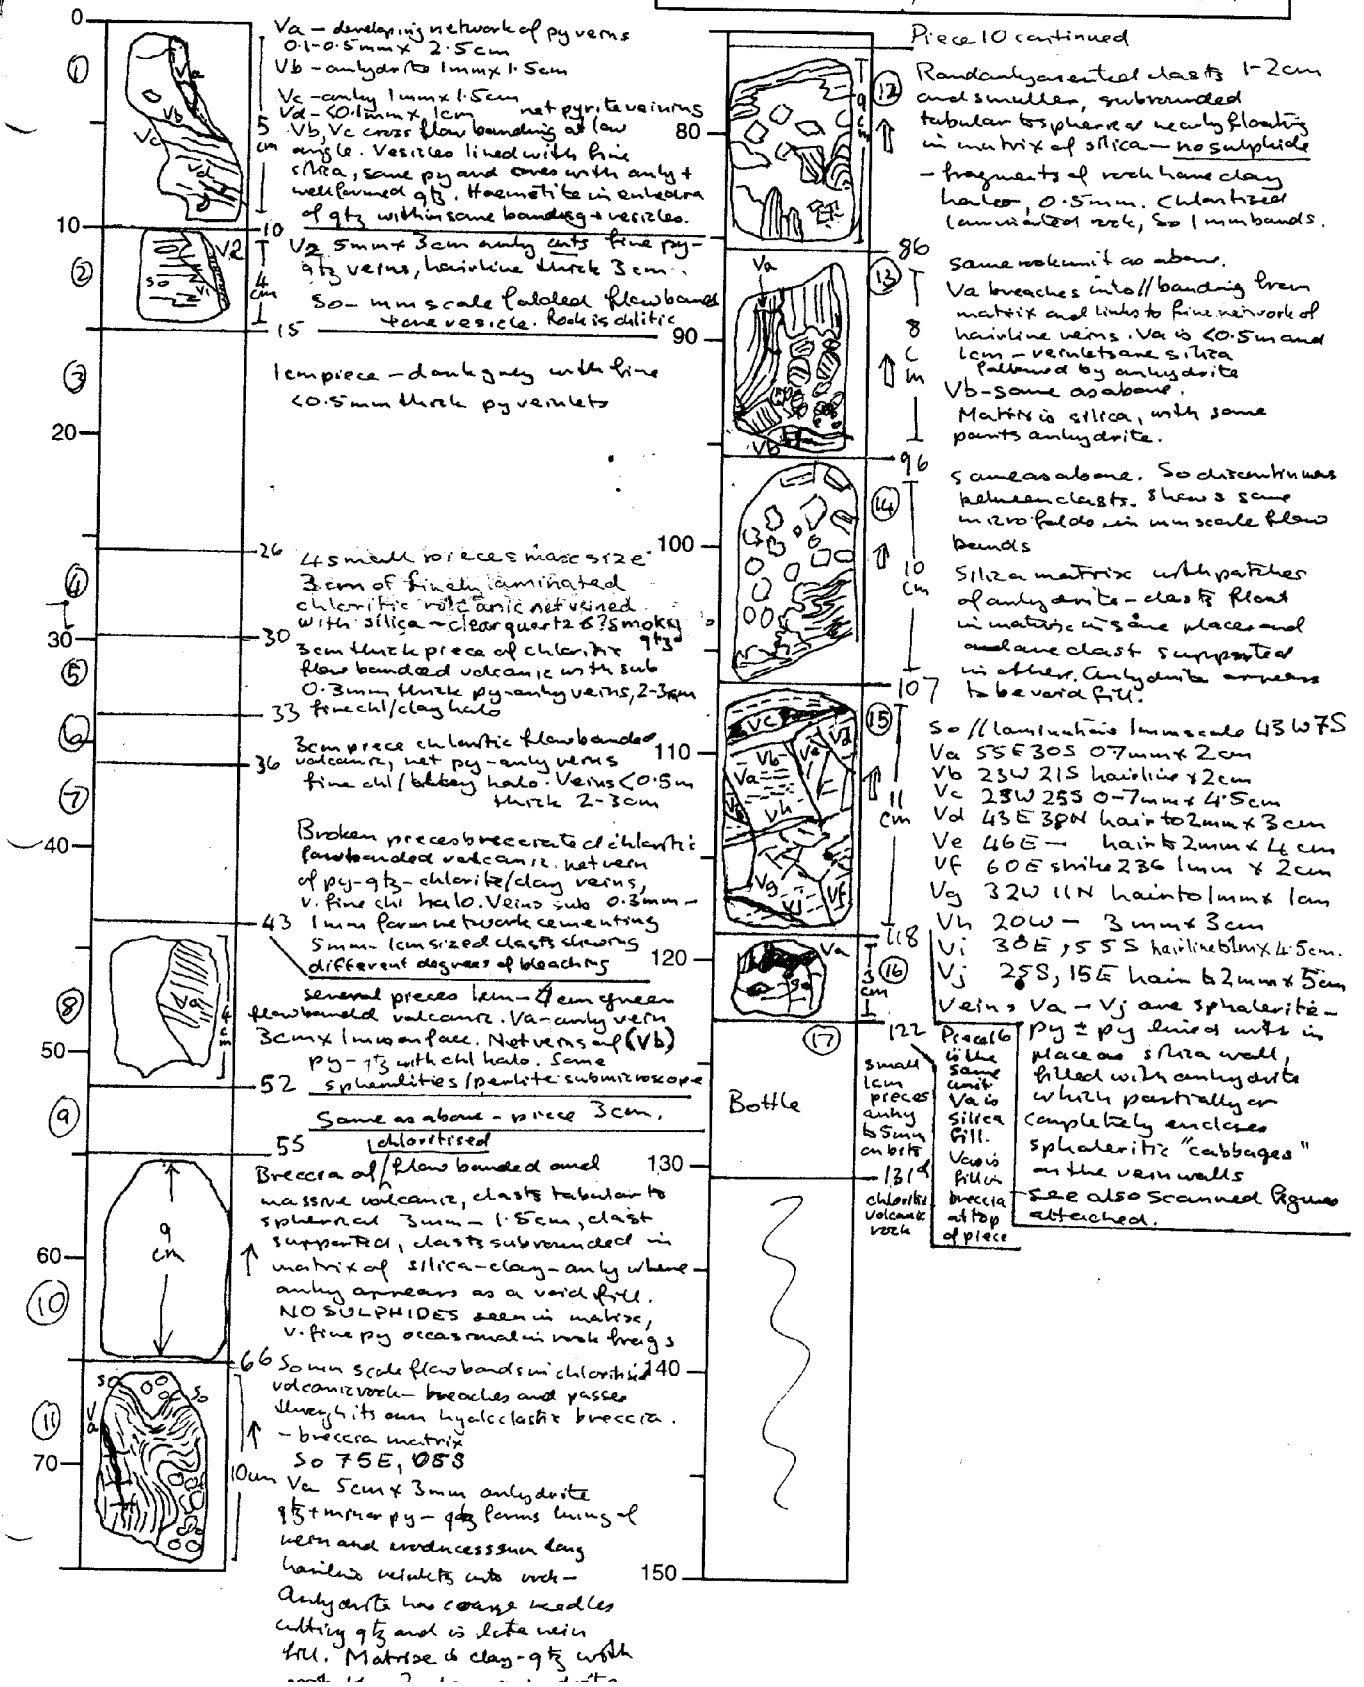 0
10
20
30
40
50
60
70
①
②
③
④
⑤
⑥
⑦
⑧
⑨
⑩
⑪
Va – developing network of py veins
0.1-0.5mm x 2.5cm
Vb – anhydrite 1mm x 1.5cm
Vc – anhy 1mm x 1.5cm
Vd – <0.1mm x 1cm net pyrite veining
Vb, Vc cross flow banding at low
angle. Vesicles lined with fine
silica, some py and cores with anhy +
wellformed qtz. Haematite in euhedra
of qtz within some banding + vesicles.
Va
Vb
Vc
Vd
5
cm
10
V2 5mm x 3cm anhy cuts fine py-
qtz veins, hairline thick 3cm.
So – mm scale folded flowband
+ one vesicle. Rock is
So
V1
V2
4
cm
15
1cm piece – dark grey with fine
<0.5mm thick py veinlets
26
4 small pieces max size
3cm of finely laminated
chloritic volcanic net veined
with silica – clear quartz & ?smoky
qtz
30
3cm thick piece of chloritic
flow banded volcanic with sub
0.3mm thick py-anhy veins, 2-3cm
fine chl/clay halo
33
3cm piece chloritic flowbanded
volcanic, net py-anhy veins
fine chl/ halo. Veins <0.5m
thick 2-3cm
36
Broken pieces brecciated chloritic
flowbanded volcanic. net vein
of py-qtz-chlorite/clay veins,
v. fine chl halo. Veins sub 0.3mm –
1mm form network cementing
5mm – 1cm sized clasts showing
different degrees of bleaching
43
several pieces 1cm – 4cm green
flowbanded volcanic. Va – anhy vein
3cm x 1mm on face. Net veins of (Vb)
py-qtz with chl halo. Some
spherulites/perlite submicroscope
4
cm
52
Same as above – piece 3cm.
55
chloritised
Breccia of / flow banded and
massive volcanic, clasts tabular to
spherical 3mm – 1.5cm, clast
supported, clasts subrounded in
matrix of silica-clay-anhy where
anhy appears as a void fill.
NO SULPHIDES seen in matrix,
v. fine py occasional in rock frags
9
cm
66
So mm scale flow bands in chloritised
volcanic rock – breaches and passes
through its own hyaloclastic breccia.
– breccia matrix
So 75E, 08S
Va 5cm x 3mm anhydrite
qtz + minor py – qtz forms lining of
vein and produces 5mm long
hairline veinlets into rock –
Anhydrite has coarse needles
cutting qtz and is late vein
fill. Matrix is clay-qtz with
So
So
Va
10cm
80
90
100
110
120
130
140
150
Piece 10 continued
⑫
9
cm
Randomly oriented clasts 1-2cm
and smaller, subrounded
tabular to spherical nearly floating
in matrix of silica – no sulphide
– fragments of rock have clay
haloes, 0.5mm. Chloritized
laminated rock, So 1mm bands.
86
⑬
8
cm
Va
Vb
same rock unit as above.
Va breaches into // banding from
matrix and links to fine network of
hairline veins. Va is <0.5m and
1cm – veinlets are silica
followed by anhydrite
Vb – same as above.
Matrix is silica, with some
parts anhydrite.
96
⑭
10
cm
same as above. So discontinuous
between clasts. Shows some
microfolds in mm scale flow
bands
Silica matrix with patches
of anhydrite – clasts float
in matrix in some places and
are clast supported
in other. Anhydrite appears
to be void fill.
107
⑮
11
cm
Vc
Vb
Va
Ve
Vd
Vh
Vg
Vf
Vj
So // laminations 1mm scale 43W 7S
Va 55E 30S 07mm x 2cm
Vb 23W 21S hairline x 2cm
Vc 23W 25S 0-7mm x 4.5cm
Vd 43E 38N hair to 2mm x 3cm
Ve 46E – hair to 2mm x 4cm
Vf 60E strike 236 1mm x 2cm
Vg 32W 11N hair to 1mm x 1cm
Vh 20W – 3mm x 3cm
Vi 38E, 55S hairline to 1mm x 4.5cm.
Vj 25S, 15E hair to 2mm x 5cm
Veins Va – Vj are sphalerite-
py ± py lined with in
place as silica wall,
filled with anhydrite
which partially or
completely encloses
sphalerite "cabbages"
on the vein walls
See also scanned figure
attached.
118
Va
⑯
3
cm
⑰
122
Piece 16
is the
same
unit
Va is
silica
fill.
Va is
fill in
breccia
at top
of piece
Bottle
small
1cm
pieces
anhy
to 5mm
on bits
of
chloritic
volcanic
rock
131